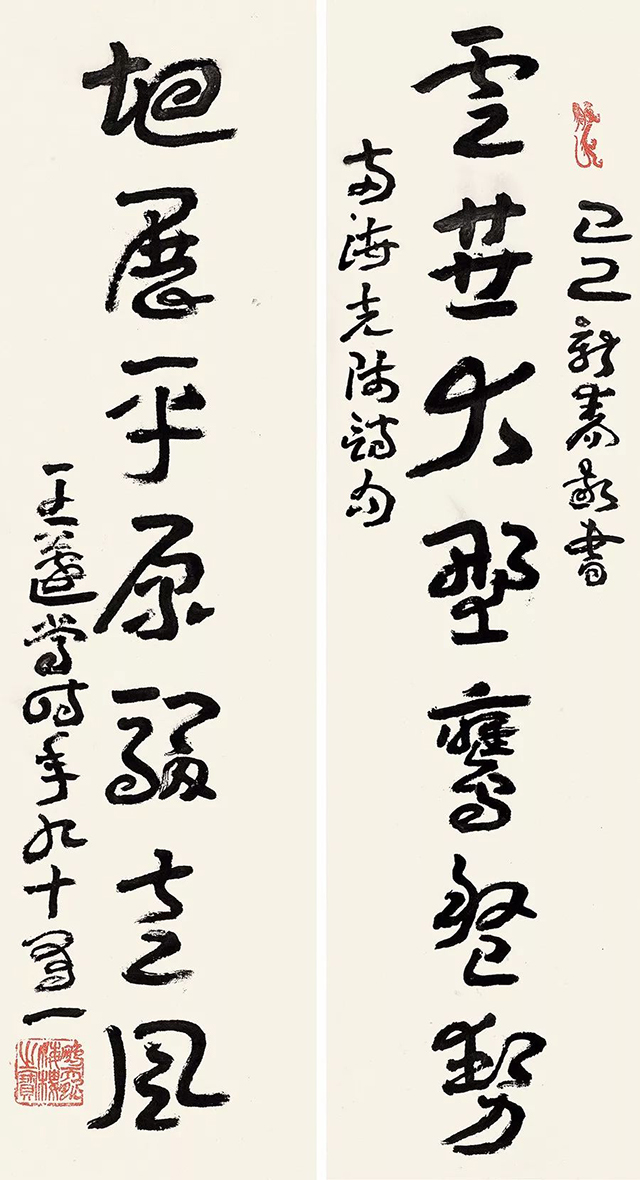 己巳新春敬書
雲垂大野鷹盤勢
南海先師詩句
地展平原駿走風
王蘧常時年九十有一